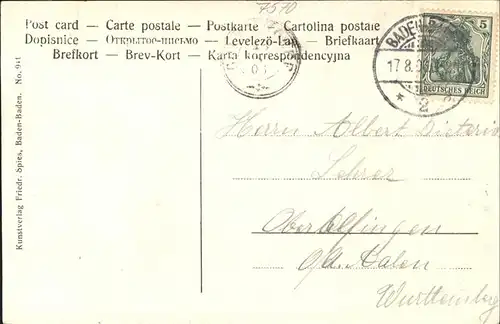 7570
Post card — Carte postale — Postkarte — Cartolina postale
Dopisnice — Открытое письмо — Levelező-Lap — Briefkaart
Brefkort — Brev-Kort — Karta korrespondencyjna
BADEN
17.8.
* 2
5
DEUTSCHES REICH
Kunstverlag Friedr. Spies, Baden-Baden. No. 941
Herrn Albert Dieterich
Lehrer
Oberalfingen
O/A. Aalen
Württemberg